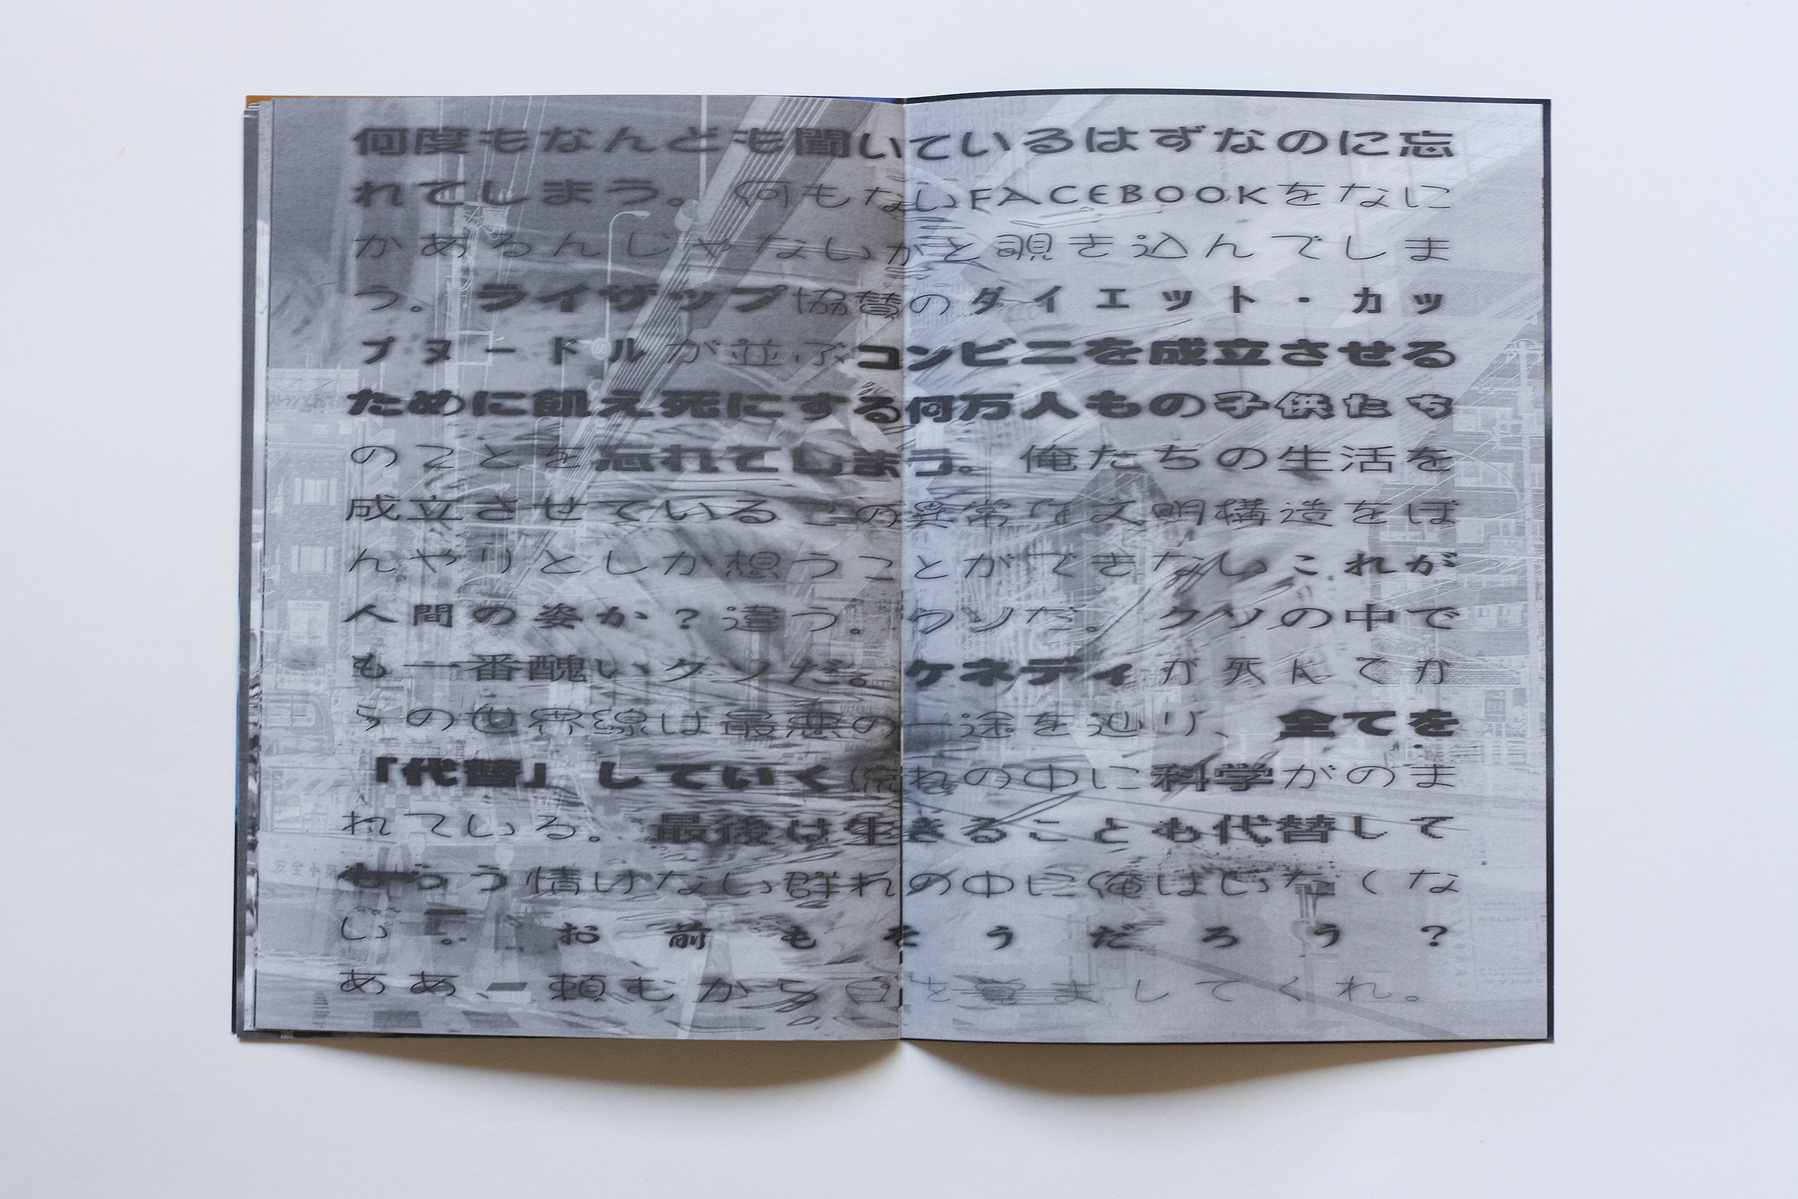 何度もなんども聞いているはずなのに忘
れてしまう。何もないFACEBOOKをなに
かあるんじゃないかと覗き込んでしま
う。ライザップ協賛のダイエット・カッ
プヌードルが並ぶコンビニを成立させる
ために飢え死にする何万人もの子供たち
のことを忘れてしまう。俺たちの生活を
成立させているこの異常な文明構造をぼ
んやりとしか想うことができないこれが
人間の姿か?違う。クソだ。クソの中で
も一番醜いクソだ。ケネディが死んでか
らの世界線は最悪の一途を辿り、全てを
「代替」していく流れの中に科学がのま
れている。最後は生きることも代替して
もらう情けない群れの中に俺はいたくな
い…お前もそうだろう?
ああ、頼むから目を覚ましてくれ。